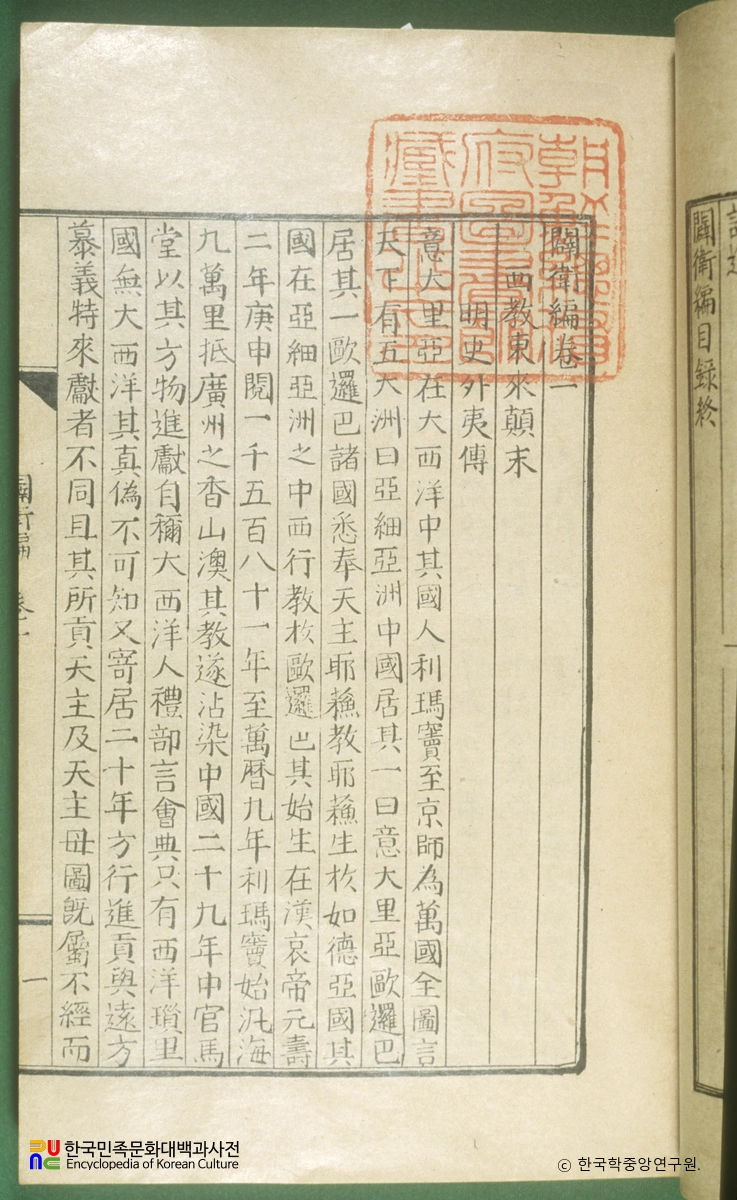 闢衛編目録終
闢衛編卷一
西教東來顛末
明史外夷傳
意大里亞在大西洋中其國人利瑪竇至京師為萬國全圖言
天下有五大洲曰亞細亞洲中國居其一曰意大里亞歐邏巴
居其一歐邏巴諸國悉奉天主耶蘓教耶蘓生扵如德亞國其
國在亞細亞洲之中西行教扵歐邏巴其始生在漢哀帝元壽
二年庚申閱一千五百八十一年至萬曆九年利瑪竇始汎海
九萬里抵廣州之香山澳其教遂沾染中國二十九年中官馬
堂以其方物進獻自稱大西洋人禮部言會典只有西洋瑣里
國無大西洋其真偽不可知又寄居二十年方行進貢與遠方
慕義特來獻者不同且其所貢天主及天主母圖旣屬不經而
闢衛編 卷一 一
朝鮮總督府圖書館藏書之印
한국민족문화대백과사전
Encyclopedia of Korean Culture
ⓒ 한국학중앙연구원.